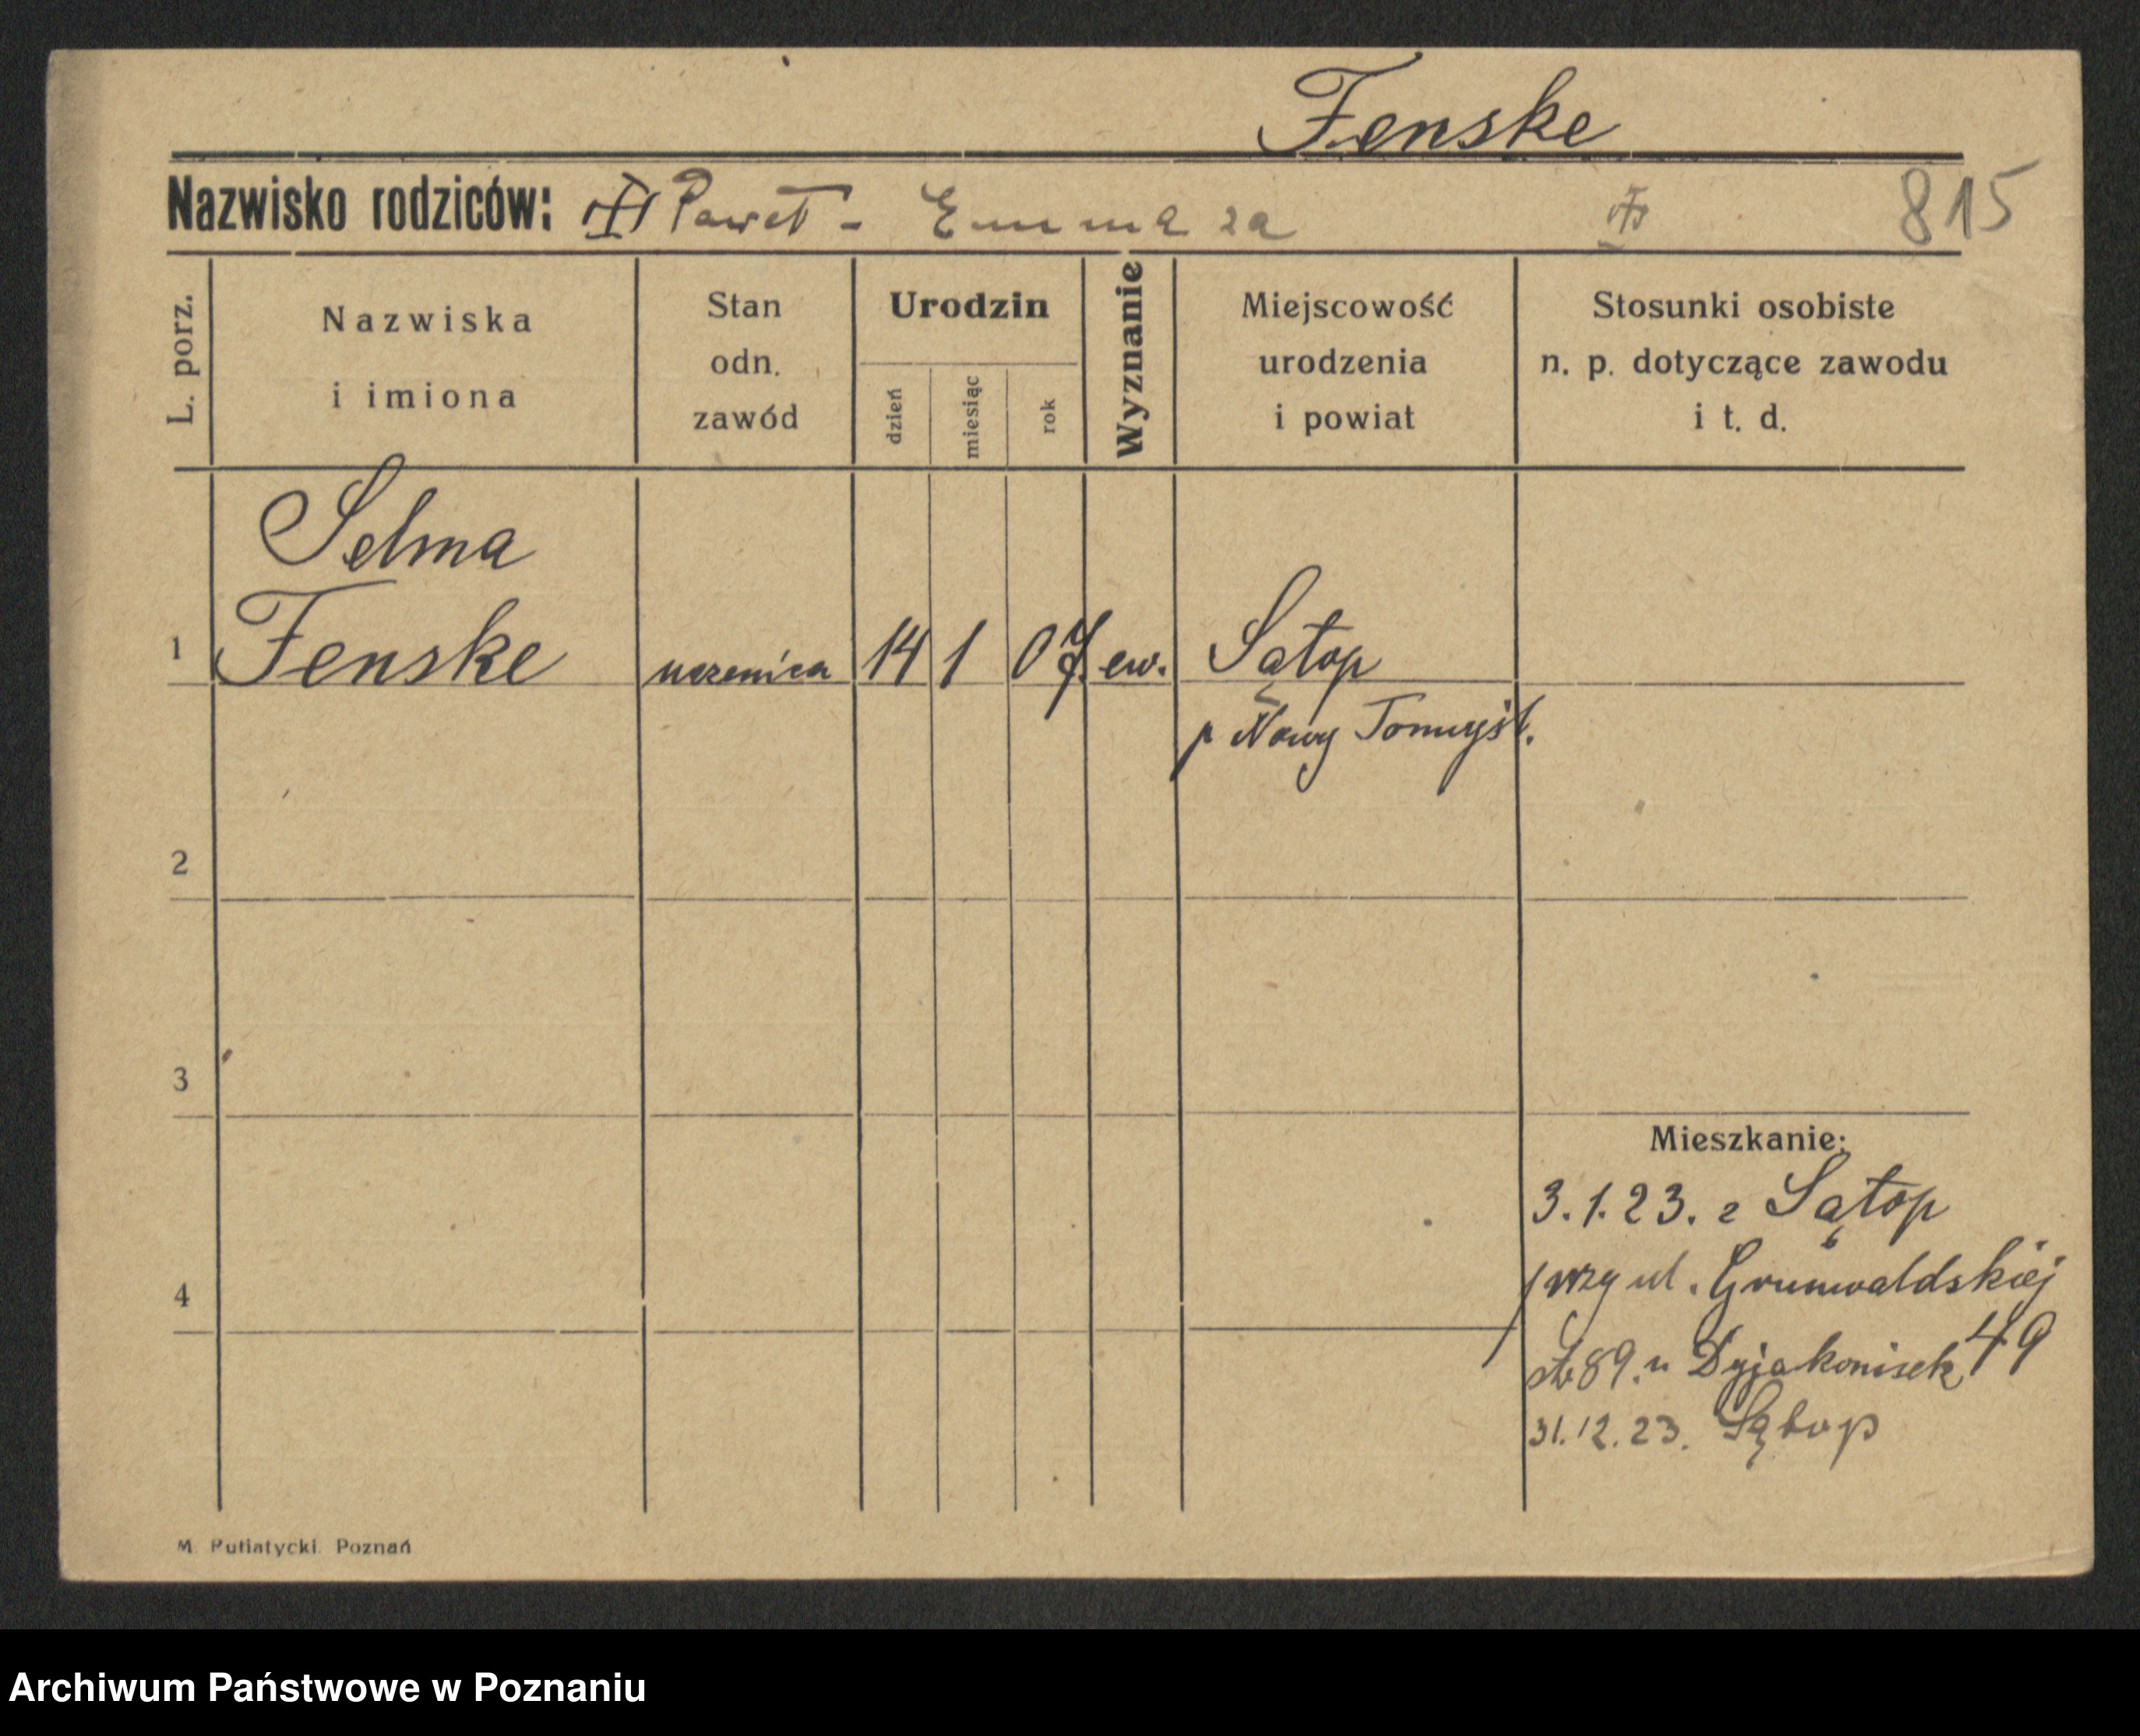 Fenske
Nazwisko rodziców: Paweł - Emma za 815
L. porz.
Nazwiska
i imiona
Stan
odn.
zawód
Urodzin
dzień
miesiąc
rok
Wyznanie
Miejscowość
urodzenia
i powiat
Stosunki osobiste
n. p. dotyczące zawodu
i t. d.
Selma
1 Fenske uczenica 14 1 07. ew. Sątop
p Nowy Tomyśl.
2
3
Mieszkanie:
3.1.23. z Sątop
4 przy ul. Grunwaldskiej 49
89. u Dyjakonisek
31.12.23. Sątop
M. Putiatycki. Poznań
Archiwum Państwowe w Poznaniu